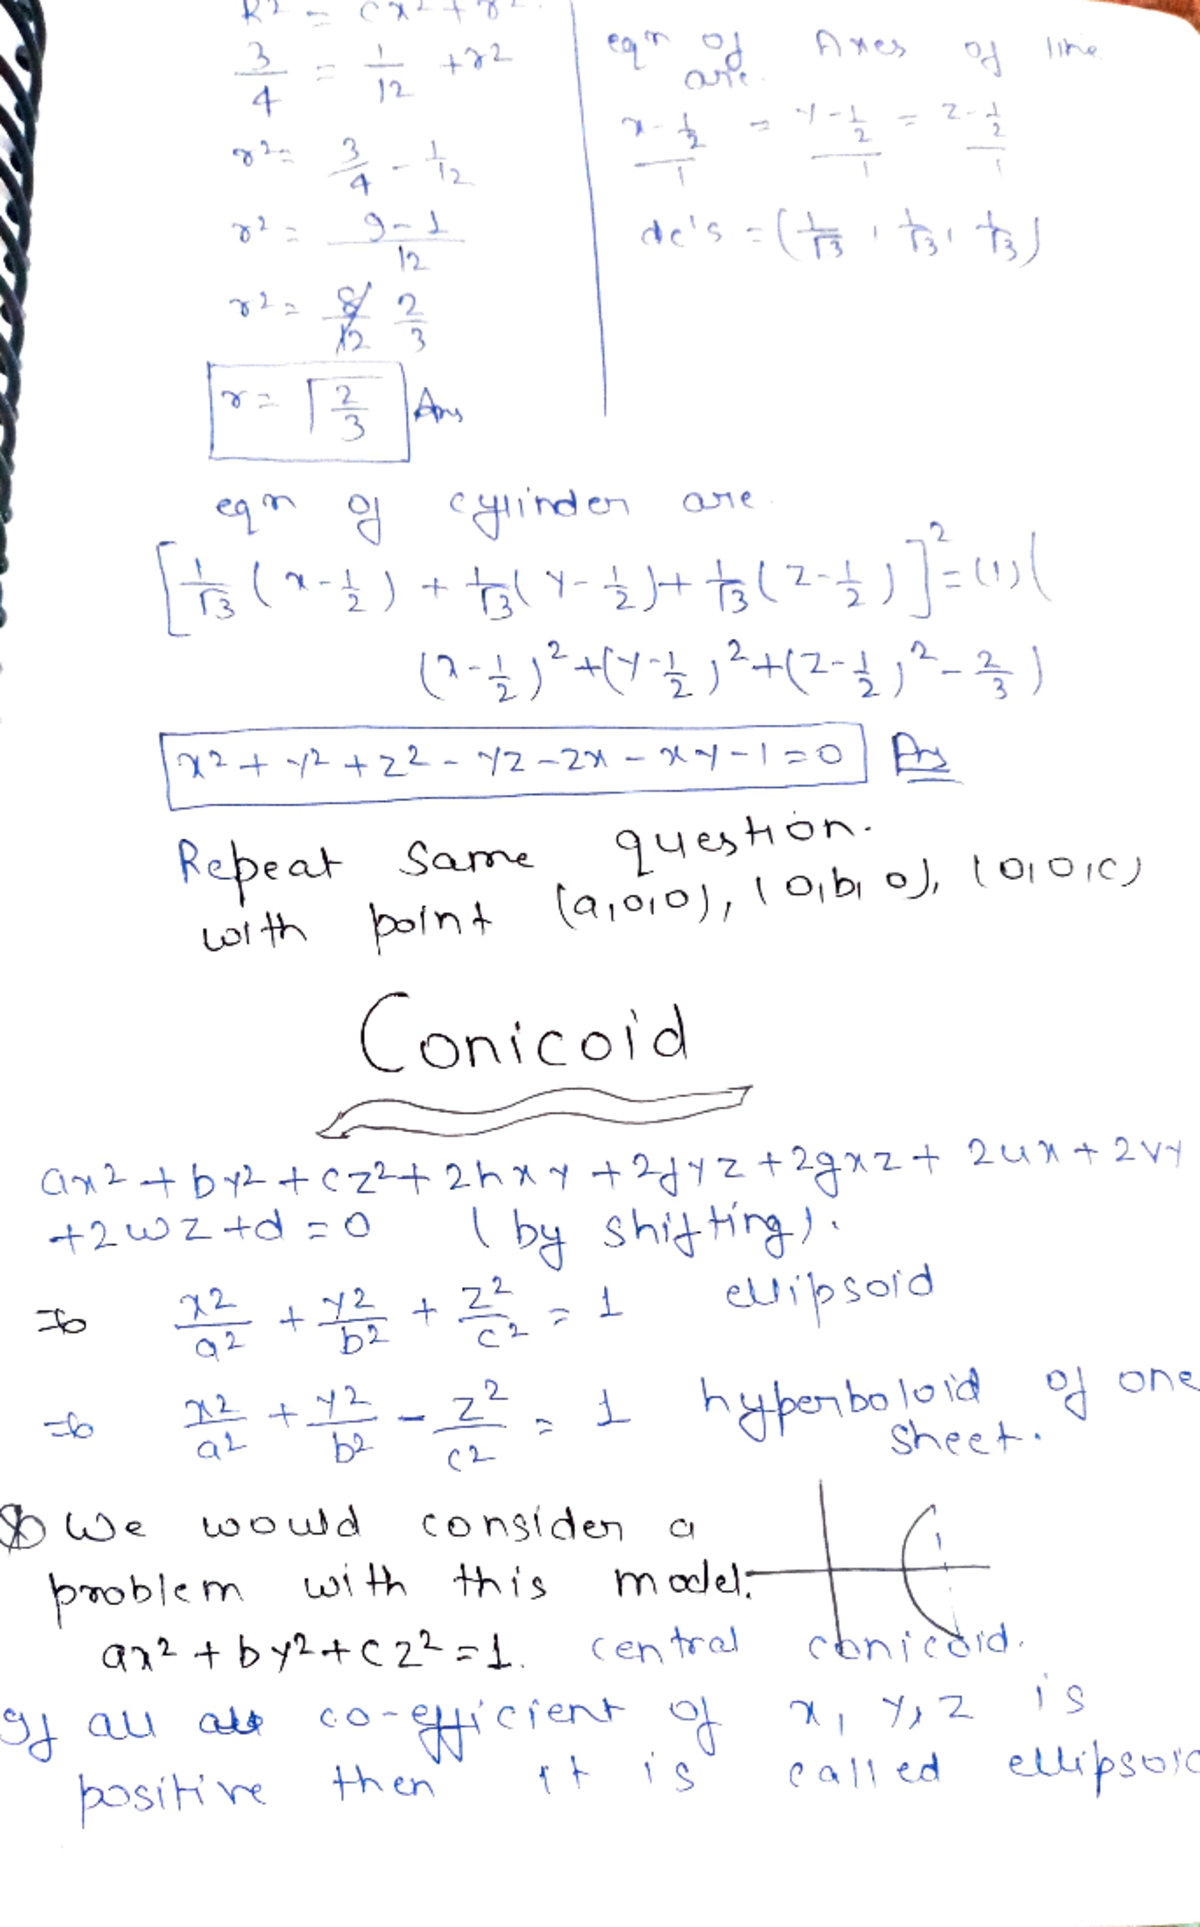 R² = cx² + r²
3/4 = 1/12 + r²
r² = 3/4 - 1/12
r² = 9-1/12
r² = 8/12 2/3
r = √2/3 Ans
eqn of Axes of line
are.
x-1/2/1 = y-1/2/1 = z-1/2/1
dc's = (1/√3, 1/√3, 1/√3)
eqn of cylinder are.
[1/√3(x-1/2) + 1/√3(y-1/2) + 1/√3(z-1/2)]² = (1)(
(x-1/2)² + (y-1/2)² + (z-1/2)² - 2/3)
x² + y² + z² - yz - zx - xy - 1 = 0 Ans
Repeat same question.
with point (a,0,0), (0,b,0), (0,0,c)
Conicoid
ax² + by² + cz² + 2hxy + 2fyz + 2gxz + 2ux + 2vy
+2wz + d = 0 (by shifting).
⇒ x²/a² + y²/b² + z²/c² = 1 ellipsoid
⇒ x²/a² + y²/b² - z²/c² = 1 hyperboloid of one
sheet.
We would consider a
problem with this model.
ax² + by² + cz² = 1. central conicoid.
If all co-efficient of x, y, z is
positive then it is called ellipsoid